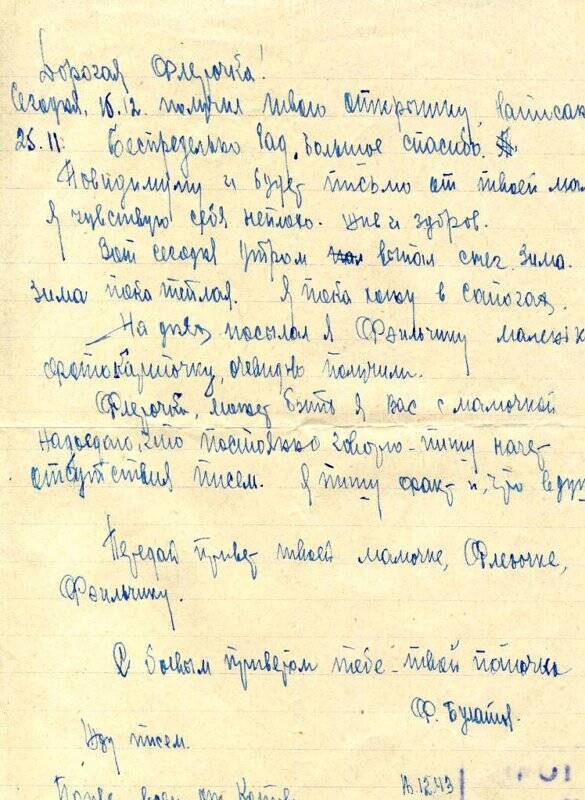 Дорогая Флерочка!
Сегодня, 16.12. получил твою открытку, написан
25.11. Беспредельно рад. Большое спасибо.
Повидимому и будет письмо от твоей ма
Я чувствую себя неплохо. Жив и здоров.
Вот сегодня утром выпал снег. Зима.
Зима пока теплая. Я пока хожу в сапогах.
На днях посылал я Фэильчику маленьк
фотокарточку, очевидно получили.
Флерочка, может быть я вас с мамочкой
надоедаю, что постоянно говорю - пишу насчет
отсутствия писем. Я пишу факт и, что
Передай привет твоей мамочке, Флерочке,
Фэильчику.
С боевым приветом тебе - твой папочка
Ф. Булатов.
Жду писем.
16.12.43